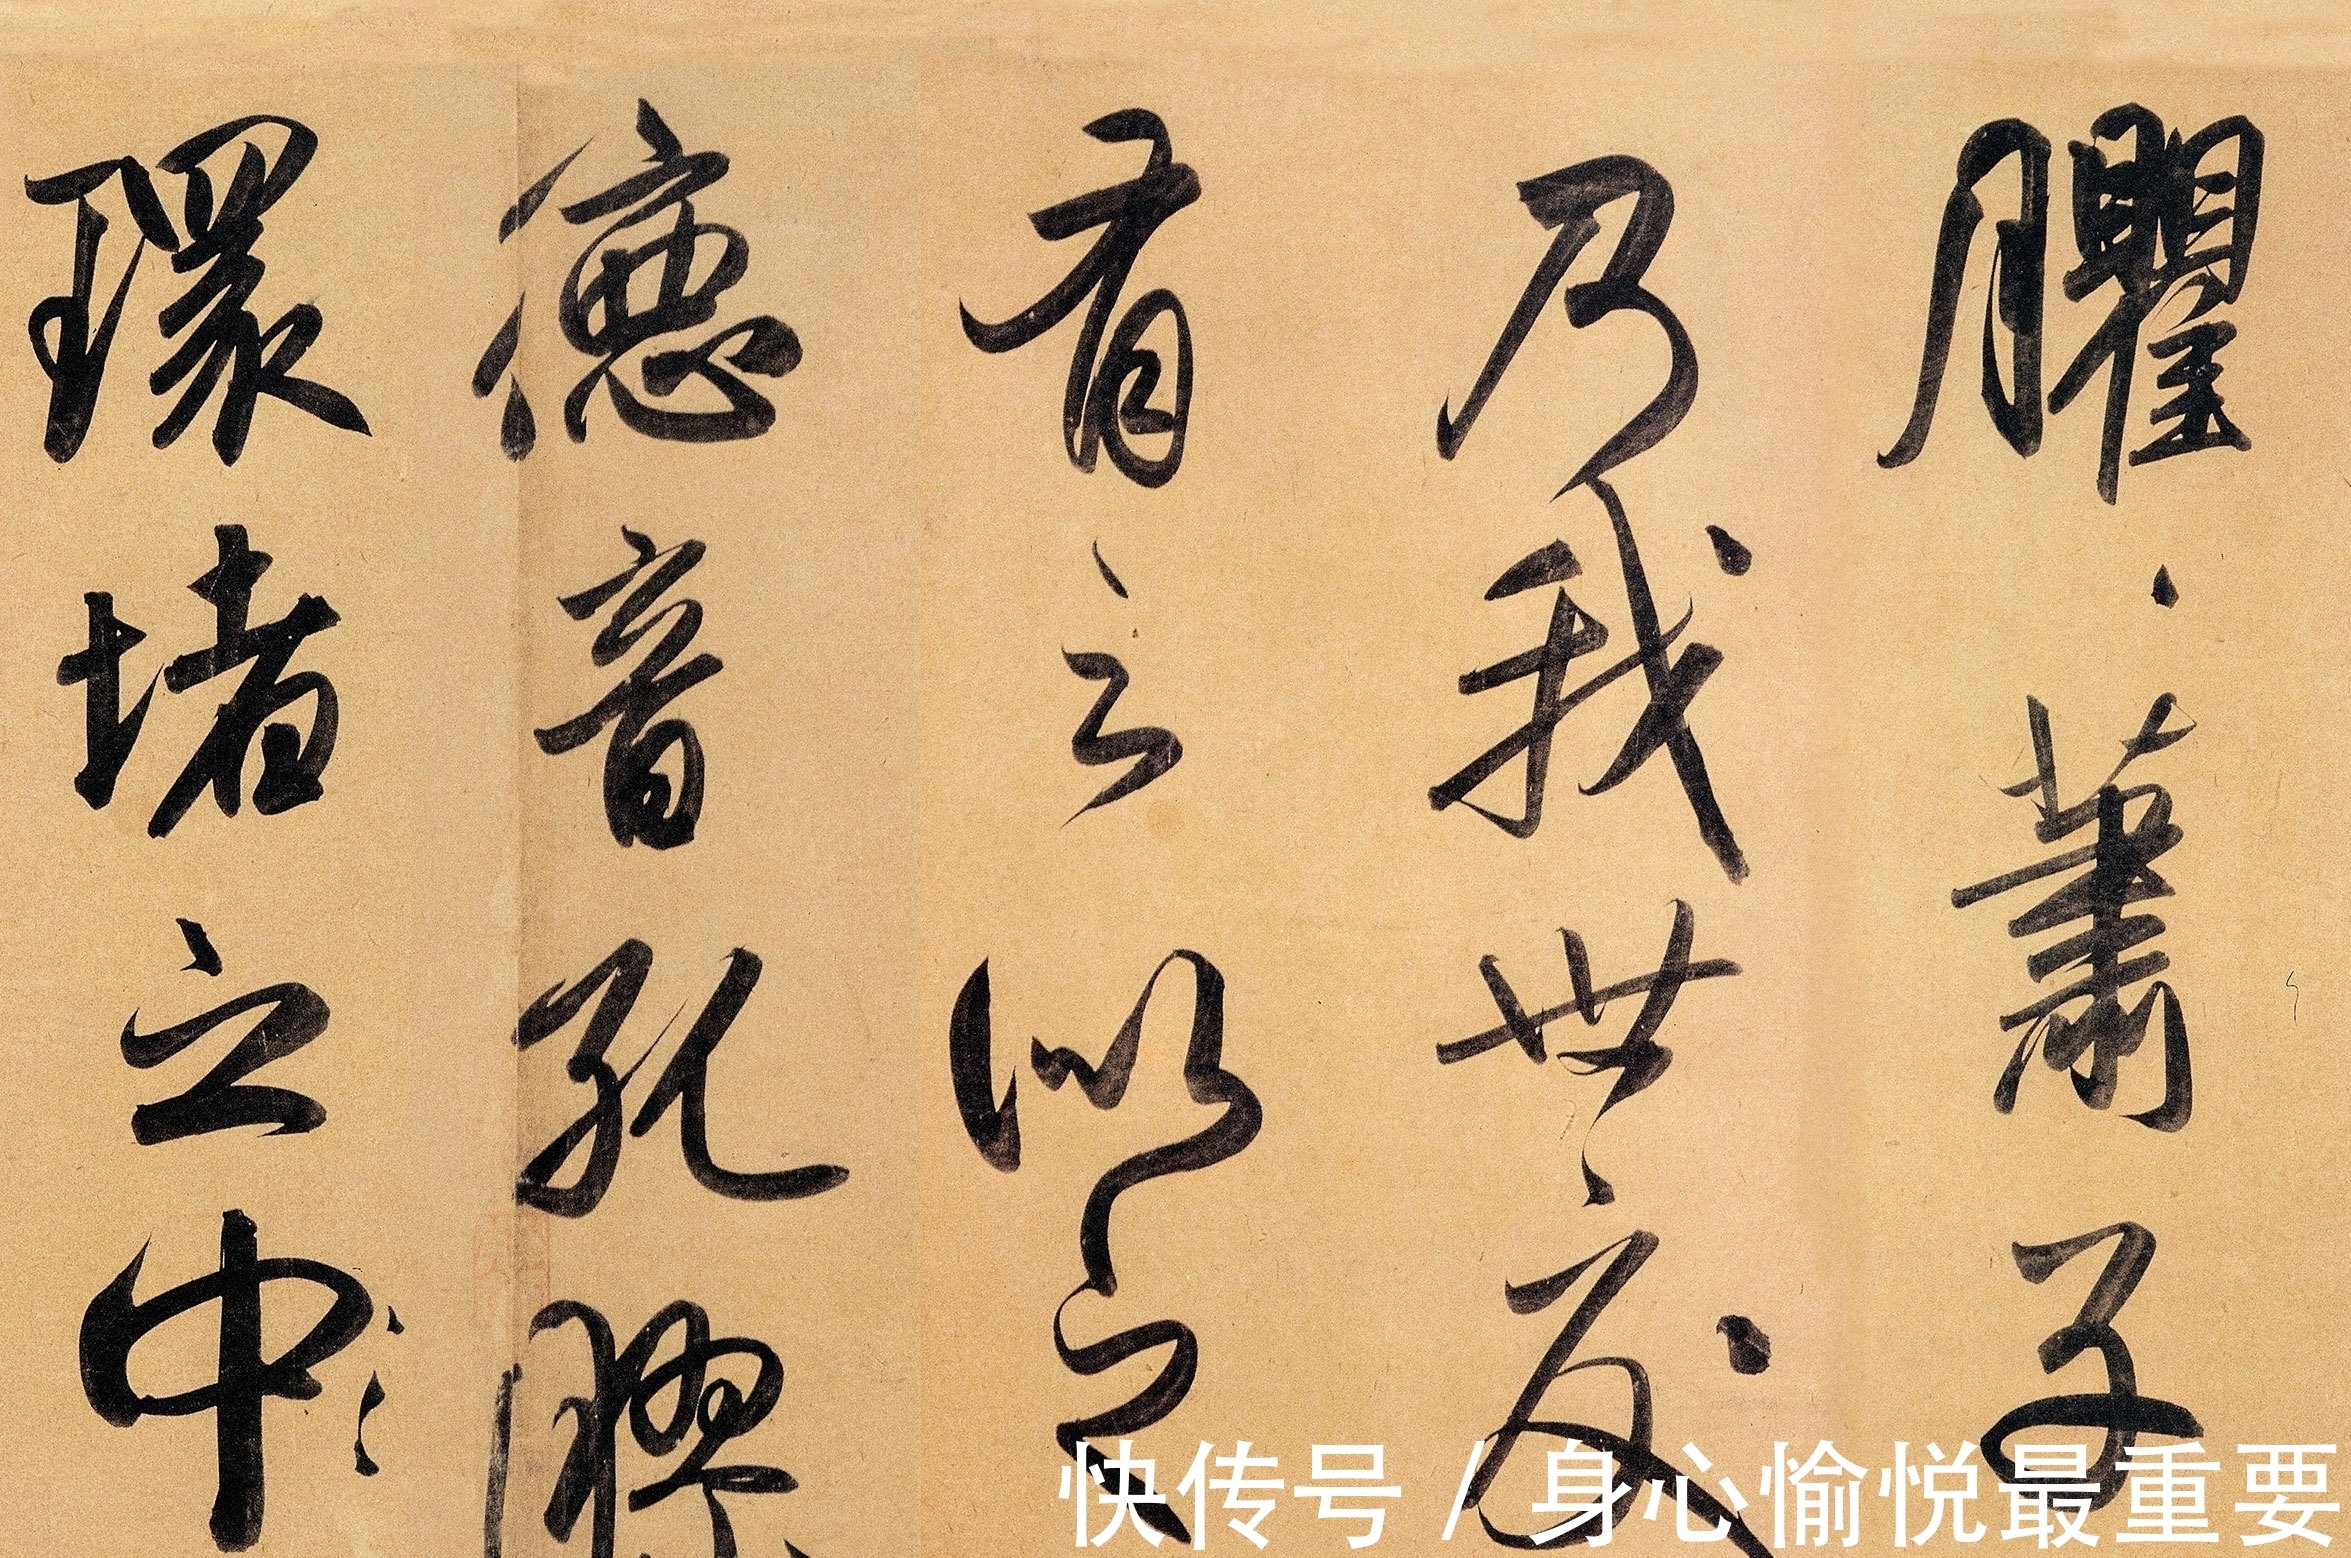 臞〻蕭子
乃我世友
有之以之
德音孔膠
環堵之中
快传号 / 身心愉悦最重要